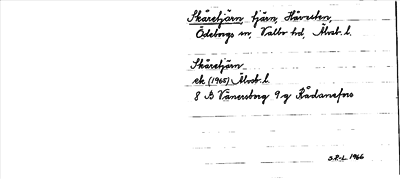 Skäretjärn, tjärn, Håvesten,
Ödeborgs sn, Valbo hd, Älvsb. l.
Skäretjärn
ek (1965) Älvsb. l.
8 B Vänersborg 9 g Rådanefors
S.R-L. 1966